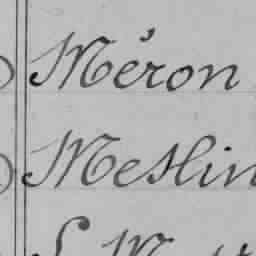 Méron
Meslin